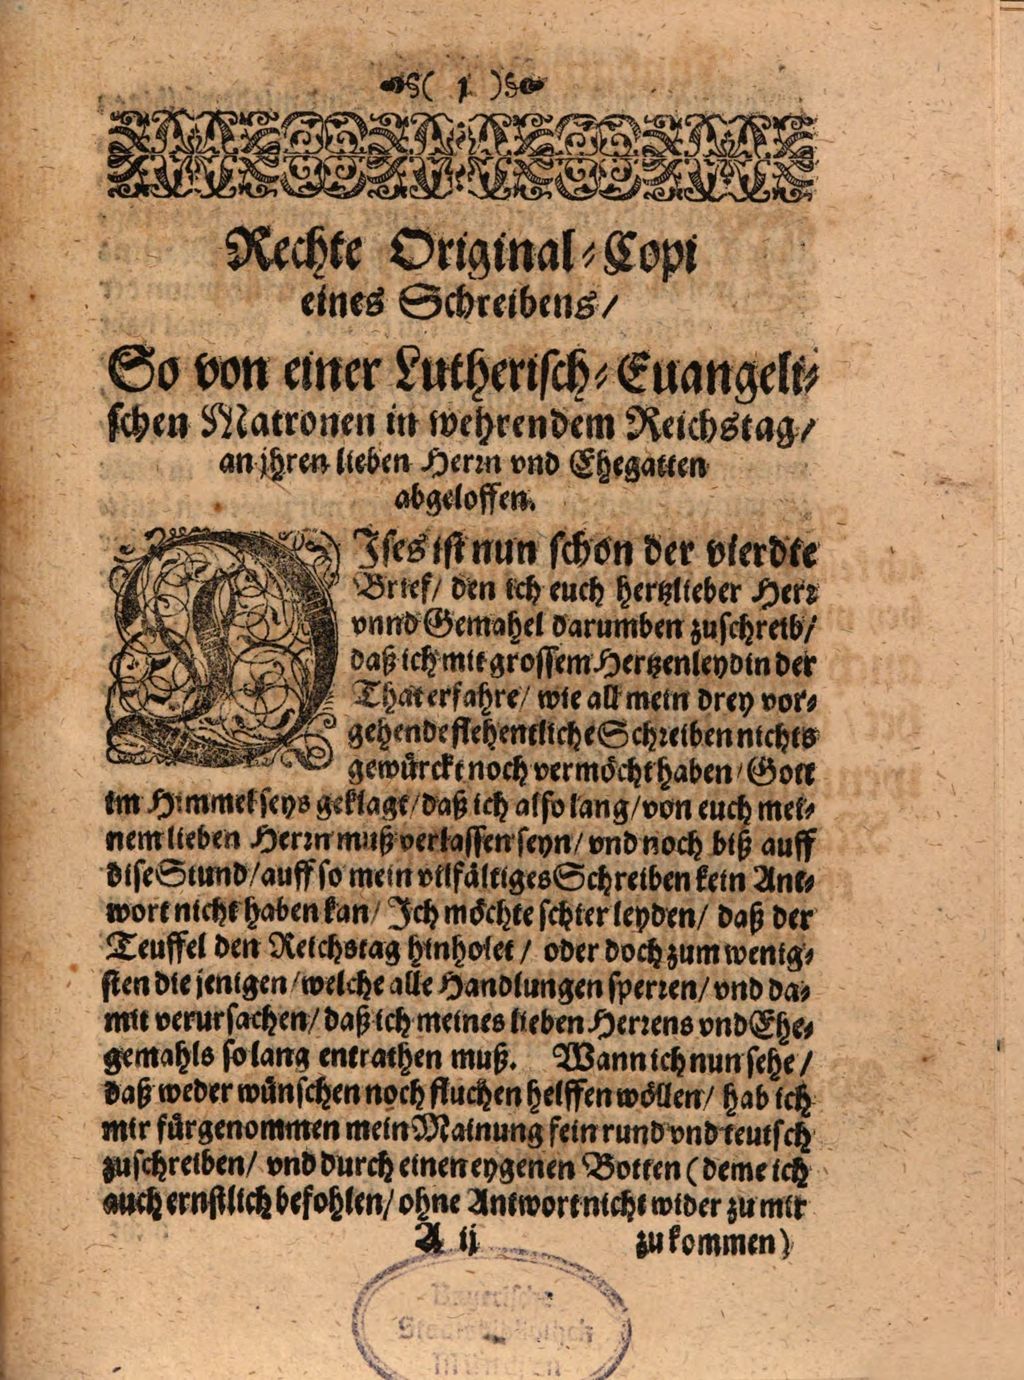 ( 1 )
Rechte Original⸗Copi
eines Schreibens/
So von einer Lutherisch⸗Euangeli⸗
schen Matronen in wehrendem Reichstag/
an jhren lieben Herrn vnd Ehegatten
abgeloffen.
DIses ist nun schon der vierdte
Brief/ den ich euch hertzlieber Herr
vnnd Gemahel darumben zuschreib/
daß ich mit grossem Hertzenleyd in der
That erfahre/ wie all mein drey vor⸗
gehende flehentliche Schreiben nichts
gewürckt noch vermöcht haben/ Gott
im Himmel seys geklagt/ daß ich also lang/ von euch mei⸗
nem lieben Herrn muß verlassen seyn/ vnd noch biß auff
dise Stund/ auff so mein vilfältiges Schreiben kein Ant⸗
wort nicht haben kan/ Ich möchte schier leyden/ daß der
Teuffel den Reichstag hinholet/ oder doch zum wenig⸗
sten die jenigen/ welche alle Handlungen sperren/ vnd da⸗
mit verursachen/ daß ich meines lieben Herrens vnd Ehe⸗
gemahls so lang entrathen muß. Wann ich nun sehe/
daß weder wünschen noch fluchen helffen wöllen/ hab ich
mir fürgenommen mein Mainung fein rund vnd teutsch
zuschreiben/ vnd durch einen eygenen Botten (deme ich
auch ernstlich befohlen/ ohne Antwort nicht wider zu mir
A ij zu kommen)
Bayerische
Staatsbibliothek
München